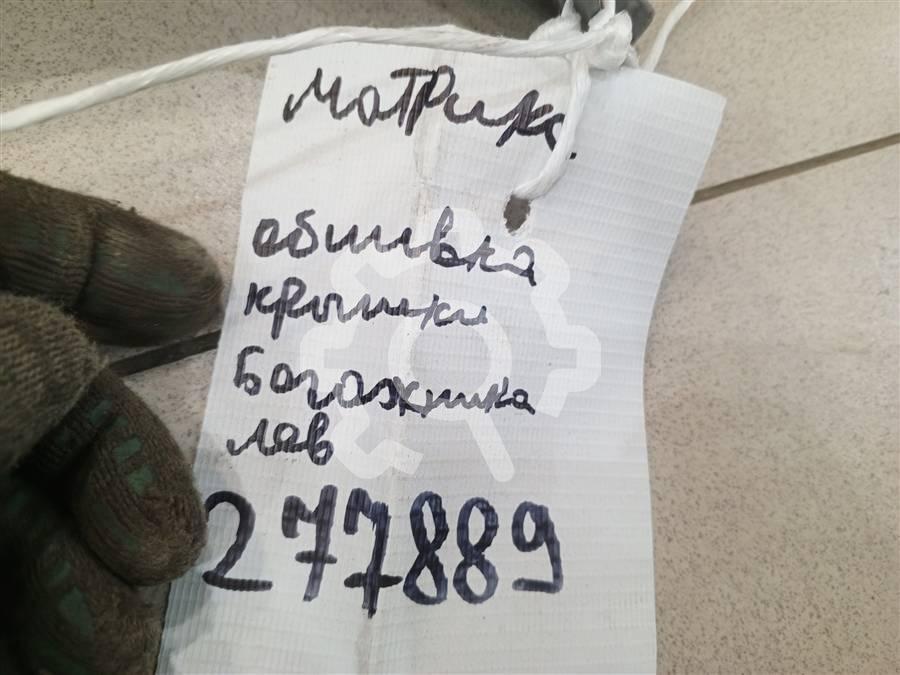 Матрикс
обшивка
крышки
Богажника
лев
277889